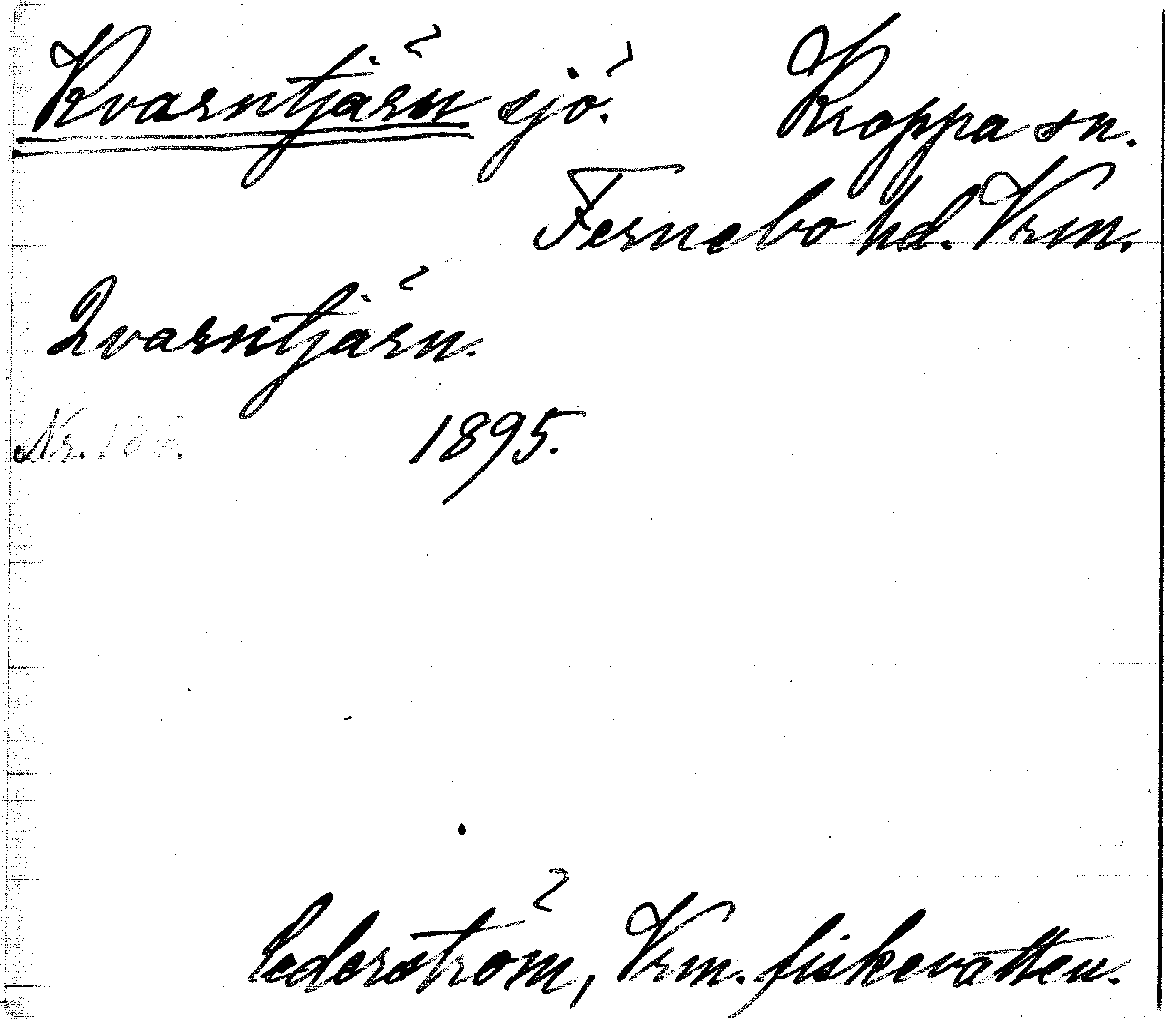 Kvarntjärn sjö. Kroppa sn.
Fernebo hd. Vrm.
Qvarntjärn.
Nr. 1895.
Cederström, Vrm. fiskevatten.